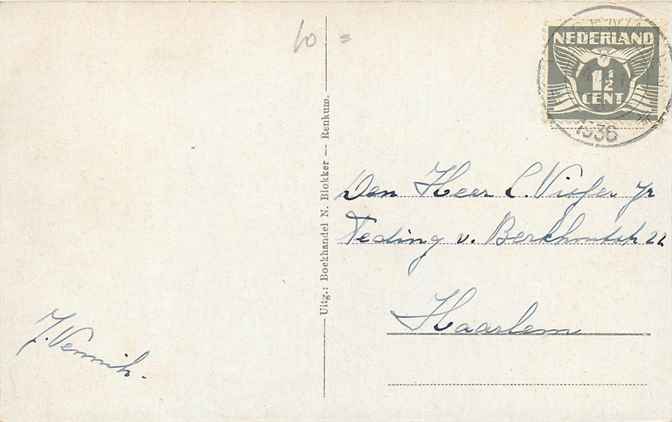 10 =
NEDERLAND
1½
CENT
1936
Uitg.: Boekhandel N. Blokker — Renkum.
Den Heer L. Visser Jr
Teding v. Berkhoutstr 22
Haarlem
J.